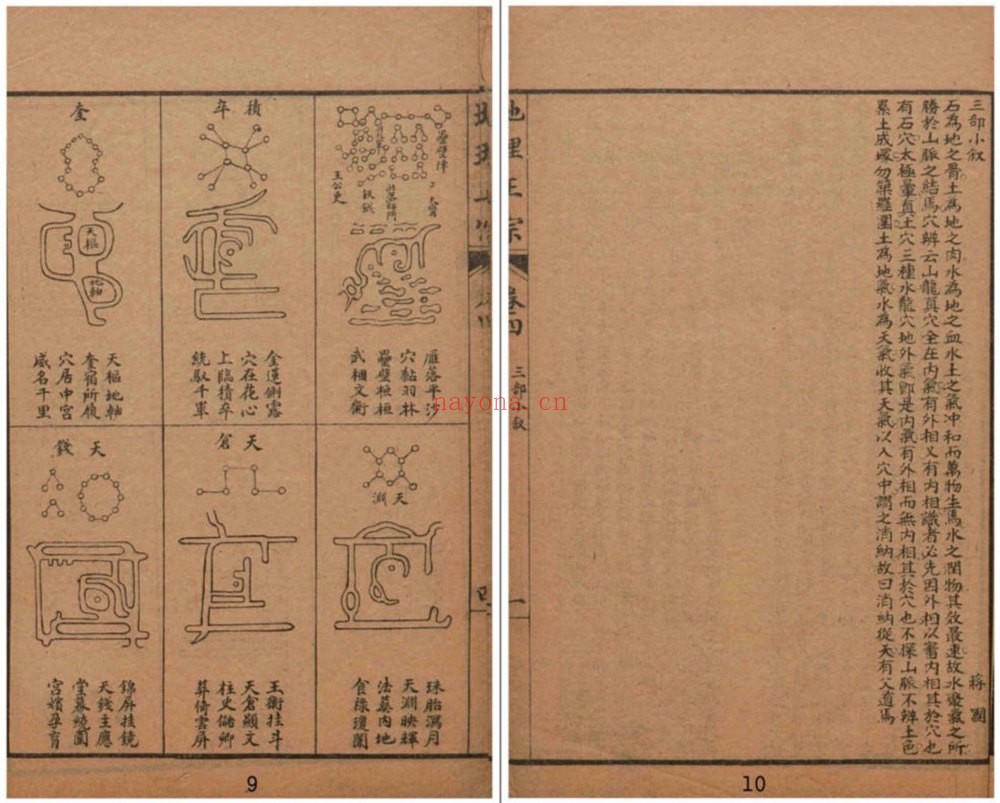 壘壁陣
鈇鉞
雁落平沙
穴黏羽林
壘壁桓桓
積卒
穴在花心
上臨積卒
統馭千軍
奎
天樞
地軸
天樞地軸
奎宿所
穴居中宮
威名千里
天淵
珠胎瀉月
天淵映輝
內地
食祿瓊
天倉
玉衡挂斗
天倉顯文
柱史儲卿
葬倚雲屏
天錢
錦屏挂鏡
天錢主應
宮嬪孕育
9
地理正宗
卷四
三部小叙
一
三部小叙
蔣國
石為地之骨土為地之肉水為地之血水土之氣冲和而萬物生焉水之潤物其效最速故水聚氣之所
勝於山脈之結焉穴辨云山龍真穴全在內氣有外相又有內相識者必先因外相以審內相其於穴也
有石穴太極暈真土穴三種水龍穴地外氣即是內氣有外相而無內相其於穴也不探山脈不辨土色
累土成塚勿築羅圍土為地氣水為天氣收其天氣以入穴中謂之消納故曰消納從天有父道焉
10
nayona.cn